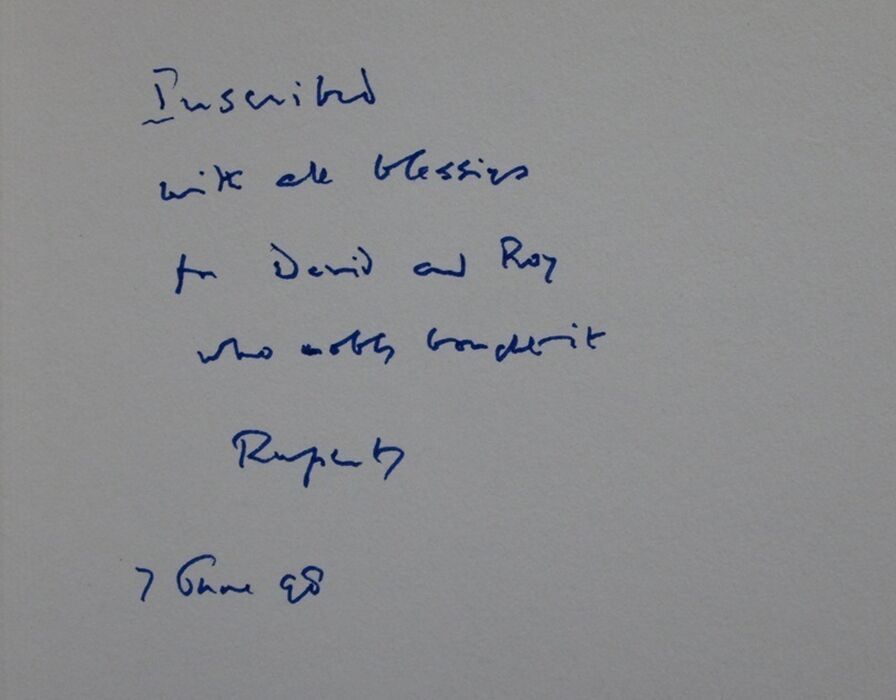 Inscribed
with all blessings
for David and Roy
who nobly bought it
Rupert
7 June 98